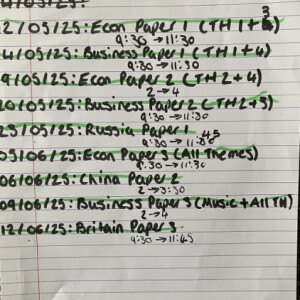 /05/25:
2/05/25: Econ Paper 1 (TH 1+3
9:30 → 11:30
4/05/25: Business Paper 1 (TH 1+4)
9:30 → 11:30
9/05/25: Econ Paper 2 (TH 2+4)
2 → 4
20/05/25: Business Paper 2 (TH 2+3)
9:30 → 11:30
23/05/25: Russia Paper 1
9:30 → 11:45
03/06/25: Econ Paper 3 (All Themes)
9:30 → 11:30
06/06/25: China Paper 2
2 → 3:30
09/06/25: Business Paper 3 (Music + All TH)
2 → 4
12/06/25: Britain Paper 3
9:30 → 11:45